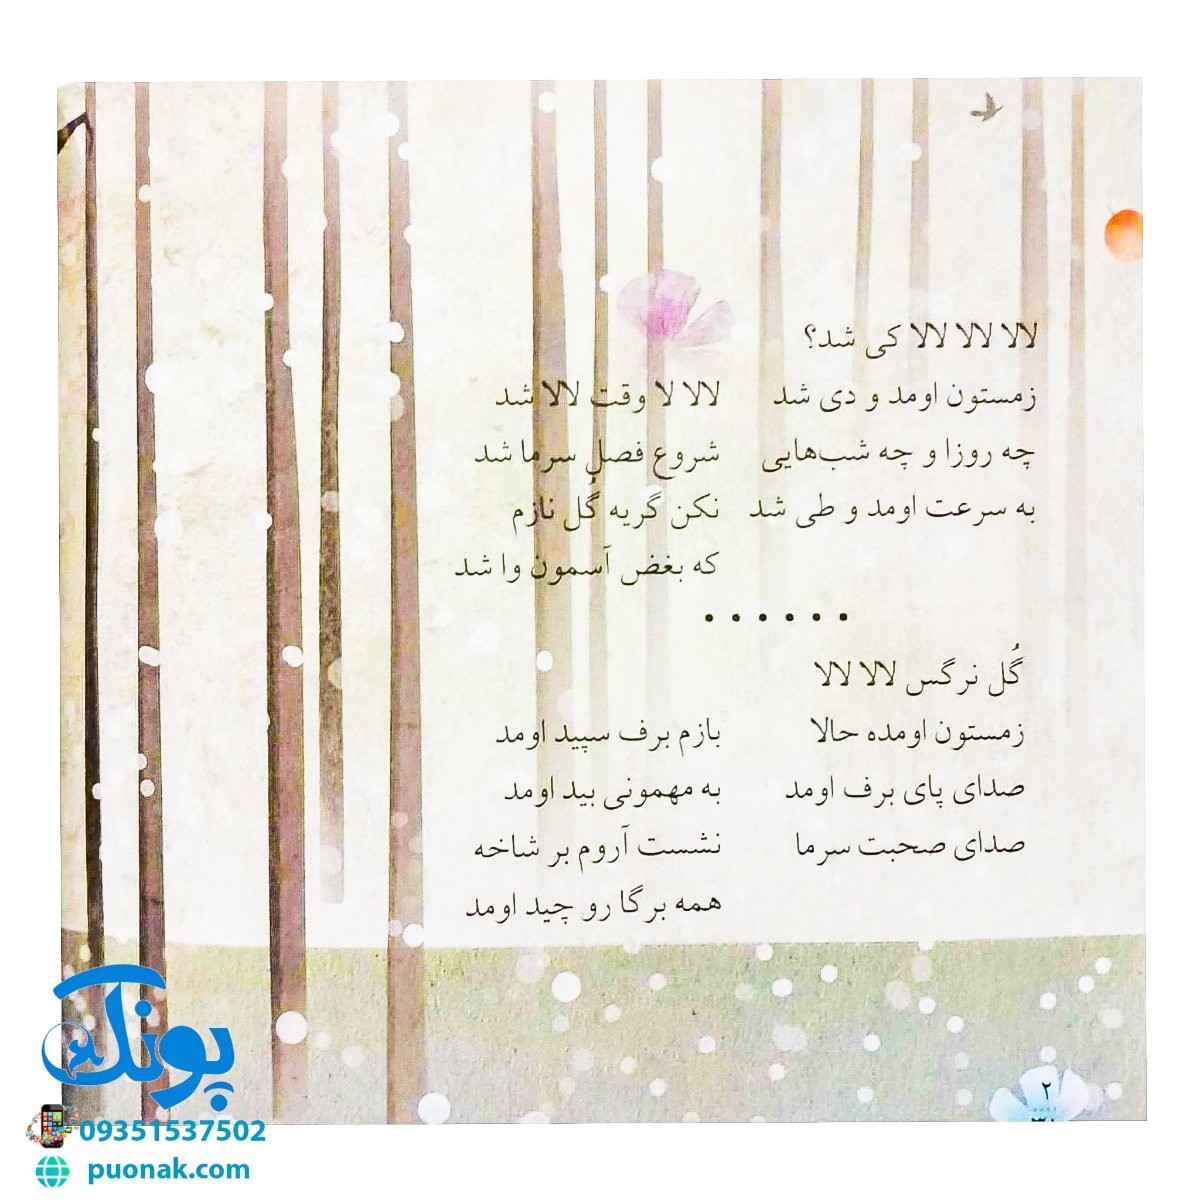 لالا لالا لالا کی شد؟
زمستون اومد و دی شد
چه روزا و چه شب‌هایی
به سرعت اومد و طی شد
لالا لا وقت لالا شد
شروع فصلِ سرما شد
نکن گریه گُل نازم
که بغض آسمون وا شد
••••••
گُل نرگس لالا لالا
زمستون اومده حالا
صدای پای برف اومد
صدای صحبت سرما
بازم برف سپید اومد
به مهمونی بید اومد
نشست آروم بر شاخه
همه برگا رو چید اومد
۲
پونک
09351537502
puonak.com